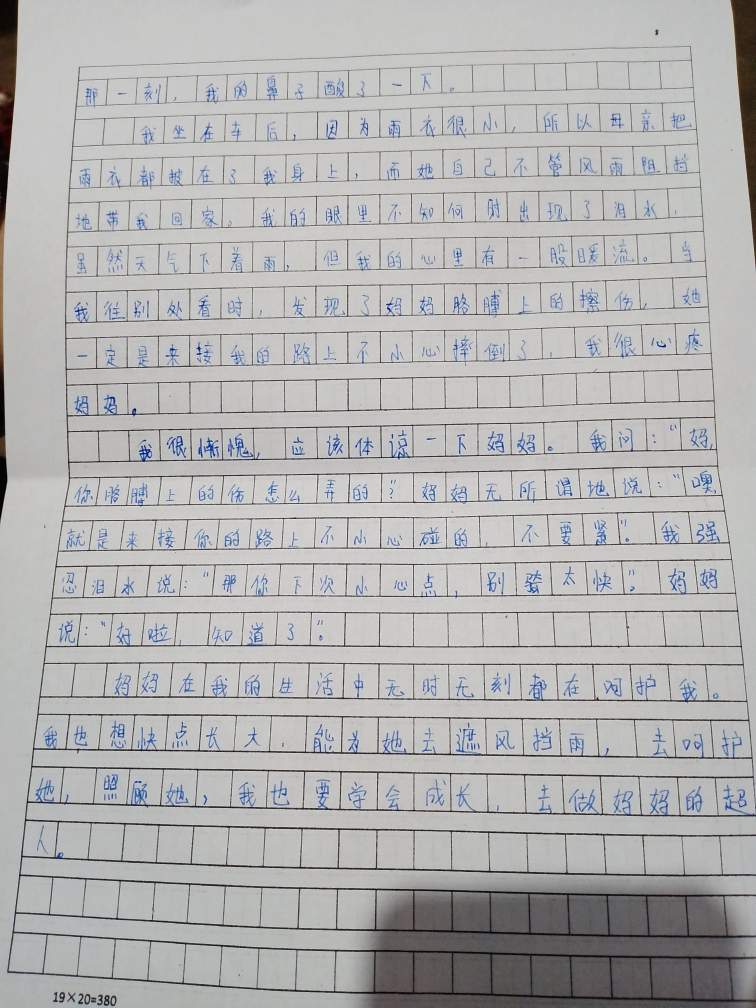 那一刻，我的鼻子酸了一下。
我坐在车后，因为雨衣很小，所以母亲把
雨衣都披在了我身上，而她自己不管风雨阻挡
地带我回家。我的眼里不知何时出现了泪水，
虽然天气下着雨，但我的心里有一股暖流。当
我往别处看时，发现了妈妈胳膊上的擦伤，她
一定是来接我的路上不小心摔倒了，我很心疼
妈妈。
我很惭愧，应该体谅一下妈妈。我问：“妈，
你胳膊上的伤怎么弄的？”妈妈无所谓地说：“噢，
就是来接你的路上不小心碰的，不要紧”。我强
忍泪水说：“那你下次小心点，别骑太快”。妈妈
说：“好啦，知道了”。
妈妈在我的生活中无时无刻都在呵护我。
我也想快点长大，能为她去遮风挡雨，去呵护
她，照顾她，我也要学会成长，去做妈妈的超
人。
19×20=380